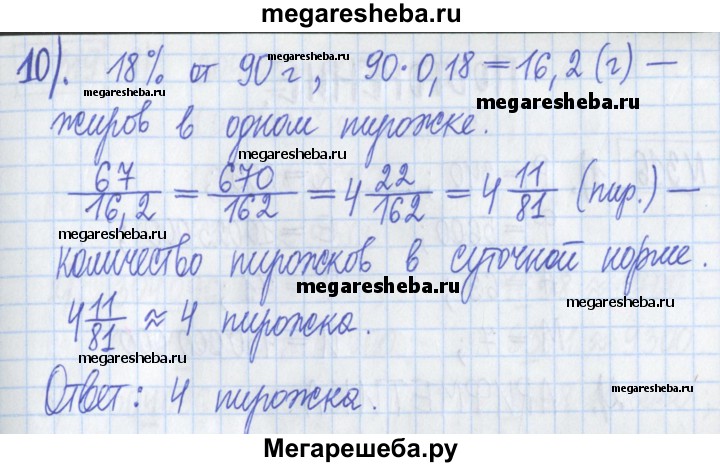 megaresheba.ru
10). 18% от 90 г, 90·0,18=16,2 (г) —
megaresheba.ru
megaresheba.ru
жиров в одном пирожке.
megaresheba.ru
67/16,2 = 670/162 = 4 22/162 = 4 11/81 (пир.) —
megaresheba.ru
megaresheba.ru
количество пирожков в суточной норме.
megaresheba.ru
megaresheba.ru
4 11/81 ≈ 4 пирожка.
megaresheba.ru
Ответ: 4 пирожка.
megaresheba.ru
Мегарешеба.ру